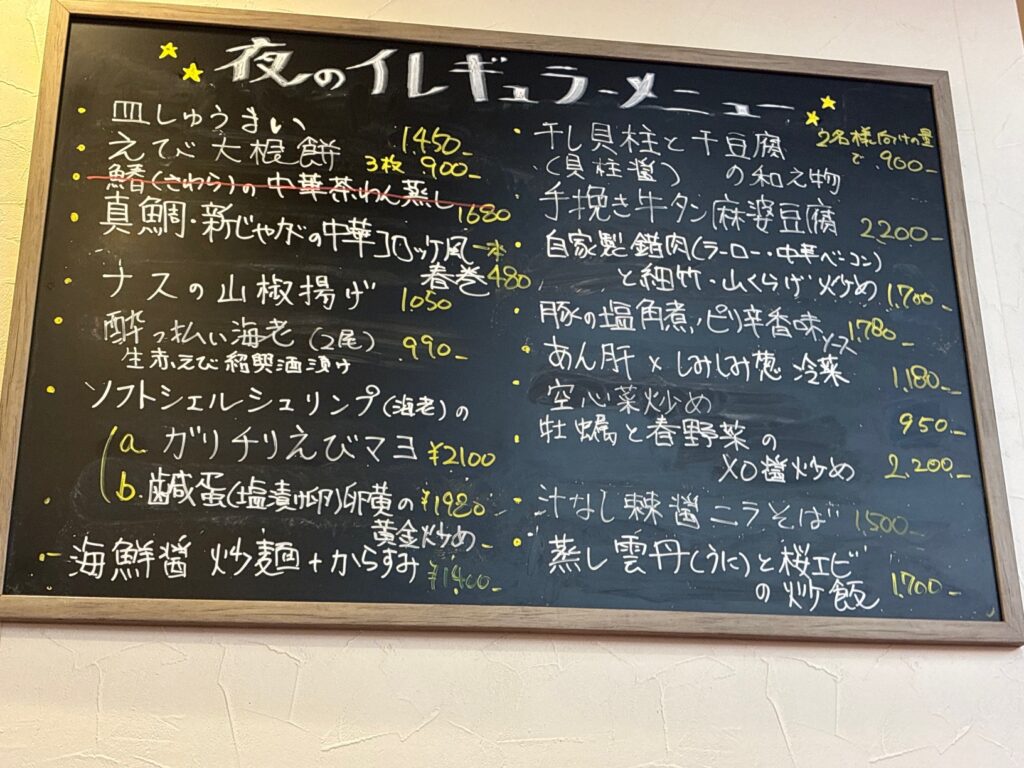 夜のイレギュラーメニュー
皿しゅうまい 1450-
えび大根餅 3枚 900-
鰆(さわら)の中華茶わん蒸し
1680
真鯛・新じゃがの中華コロッケ風一本
春巻 480
ナスの山椒揚げ 1050
酔っ払い海老(2尾) 990-
生赤えび紹興酒漬け
ソフトシェルシュリンプ(海老)の
a. ガリチリえびマヨ ¥2100
b. 鹹蛋(塩漬け卵)卵黄の ¥1980
黄金炒め-
海鮮醤 炒麺+からすみ ¥1400-
干し貝柱と干豆腐 2名様向けの量
(貝柱醤)の和え物 で 900-
手挽き牛タン麻婆豆腐 2,200-
自家製腊肉(ラーロー・中華ベーコン)
と細竹・山くらげ炒め 1,700-
豚の塩角煮、ピリ辛香味ソース 1,780-
あん肝×しみしみ葱 冷菜 1,180-
空心菜炒め 950-
牡蠣と春野菜の
XO醤炒め 2,200-
汁なし棘醤ニラそば 1,500-
蒸し雲丹(うに)と桜エビ
の炒飯 1,700-